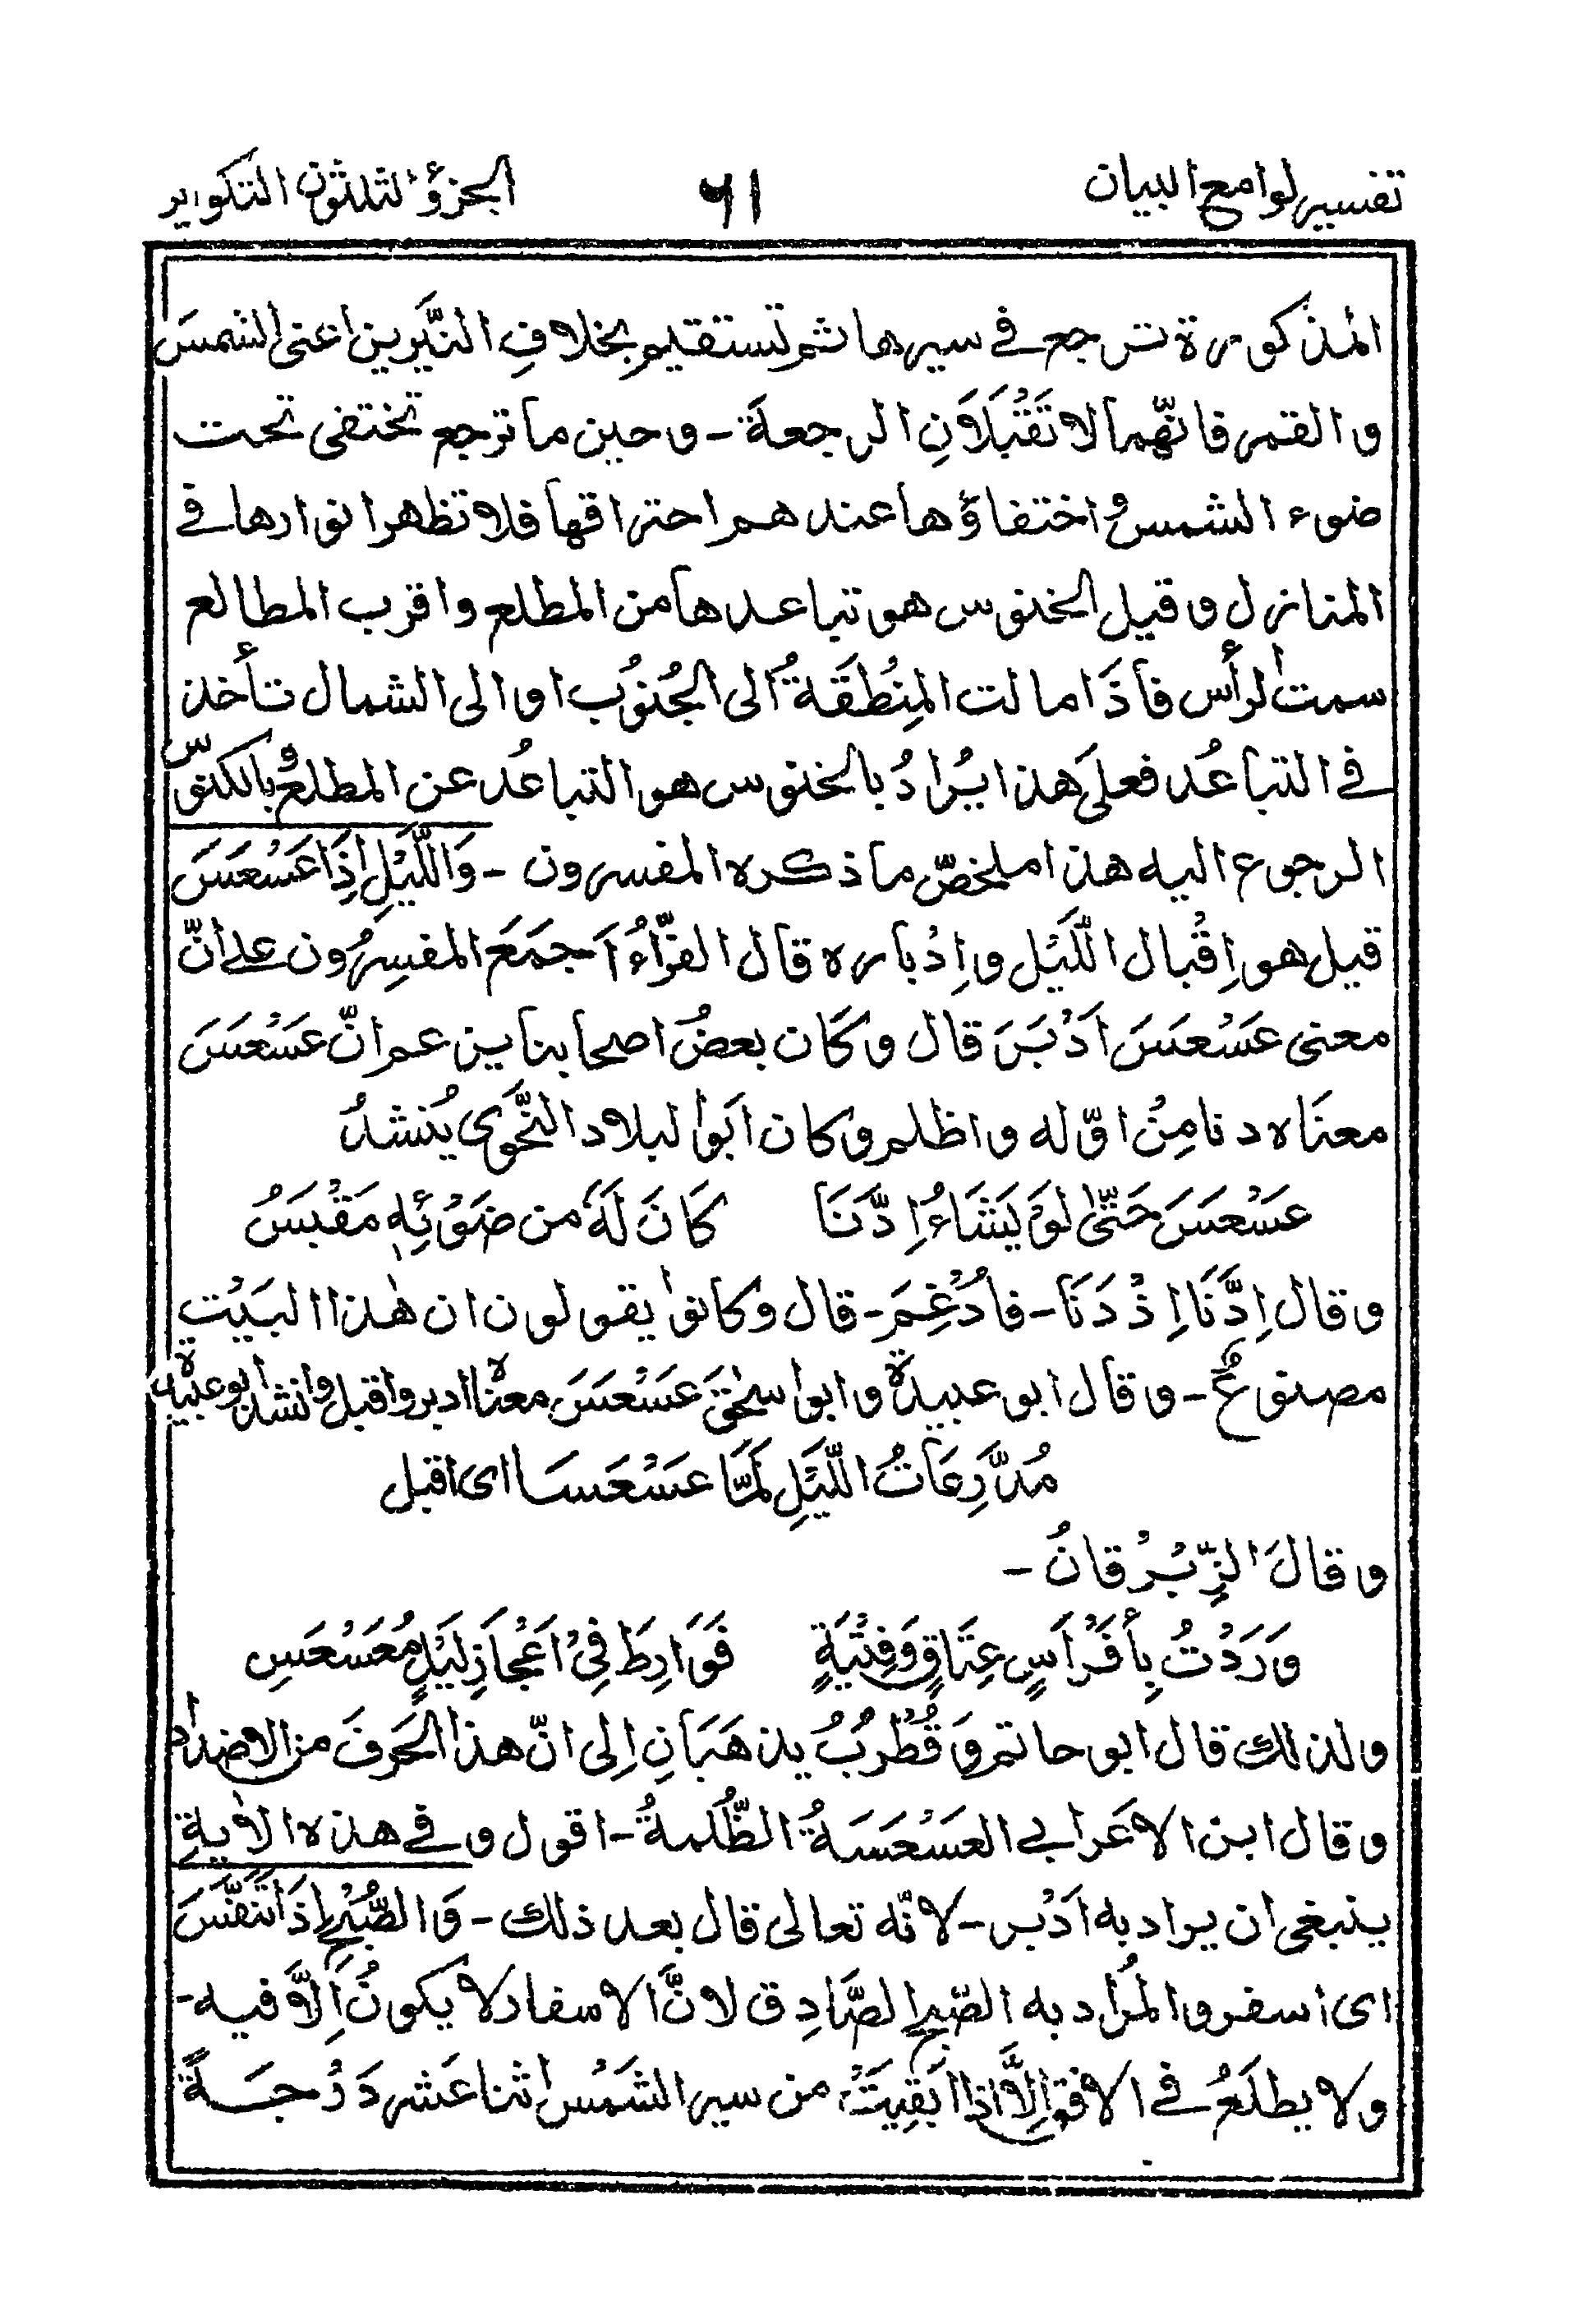 تفسير لوامع البيان ٦١ الجزؤ الثلثون التكوير
المذكورة ترجع في سيرها ثم تستقيم بخلافِ النَّيِّرين اعنى الشمسَ
و القمر فانّهما لا تَقْبَلَانِ الرجعةَ - و حين ما ترجع تختفى تحت
ضوء الشمس و اختفاؤها عند هم احتراقها فلا تظهر انوارها في
المنازل و قيل الخنوس هو تباعدها من المطلع و اقرب المطالع
سمت الرأس فأذَا مالت المِنْطَقَةُ الى الجُنوُب او الى الشمال تأخذ
في التباعُد فعلىَ هذا يُرادُ بالخنوس هو التباعُد عن المطلع و بالكنوس
الرجوع اليه هذا ملخصّ ما ذكره المفسرون - وَاللَّيْلِ إِذَا عَسْعَسَ
قيل هو اِقْبال اللَّيْل و اِدْباره قال الفرّاءُ اَجمَعَ المفسِرُون على انّ
معنى عَسْعَسَ اَدْبَرَ قال و كَان بعضُ اصحابنا يزعم انّ عَسْعَسَ
معنَاه دنا مِنْ اوّله و اظلم و كان ابَو البلاد النَّحْوِى يُنشدُ
عَسْعَسَ حَتّىٰ لَوْ يَشَاءُ اِدَّنَا كَانَ لَهٗ من ضَوْئِهٖ مَقْبَسُ
و قال اِدَّنَا اِذْ دَنَا - فاُدْغِمَ - قال و كانوا يقولون ان هٰذا البَيْت
مصنوعٌ - و قال ابو عبيدة و ابو اسحٰقَ عَسْعَسَ معناه ادبر و اقبل و انشد ابو عبيدة
مُدَّرِعَاتُ اللَّيْلِ لَمَّا عَسْعَسَا اى اقبل
و قالَ الزِّبْرْقانُ -
وَرَدْتُ بِأَفْرَاسٍ عِتَاقٍ وَفِتْيَةٍ فَوَارِطَ فِىْ اَعْجَازِ لَيْلٍ مُعَسْعَسِ
و لذلك قال ابو حاتم وَ قُطْرُبُ يذهَبَانِ اِلى انّ هذا الحَرفَ من الاضداد
و قال ابن الاعَرابي العَسْعَسَةُ الظُّلمةُ - اقول و في هذه الاٰيةِ
ينبغى ان يراد به اَدْبر - لانّه تعالى قال بعد ذلك - وَ الصُّبْحِ إِذَا تَنَفَّسَ
اى اسفر و المُراد به الصّبح الصَّادِق لانَّ الاسفار لا يكونُ اِلَّا فيه -
و لا يطلَعُ في الافق اِلَّا اذا بَقِيَتْ من سير الشَمْس اثنا عَشر دَرْجَةً